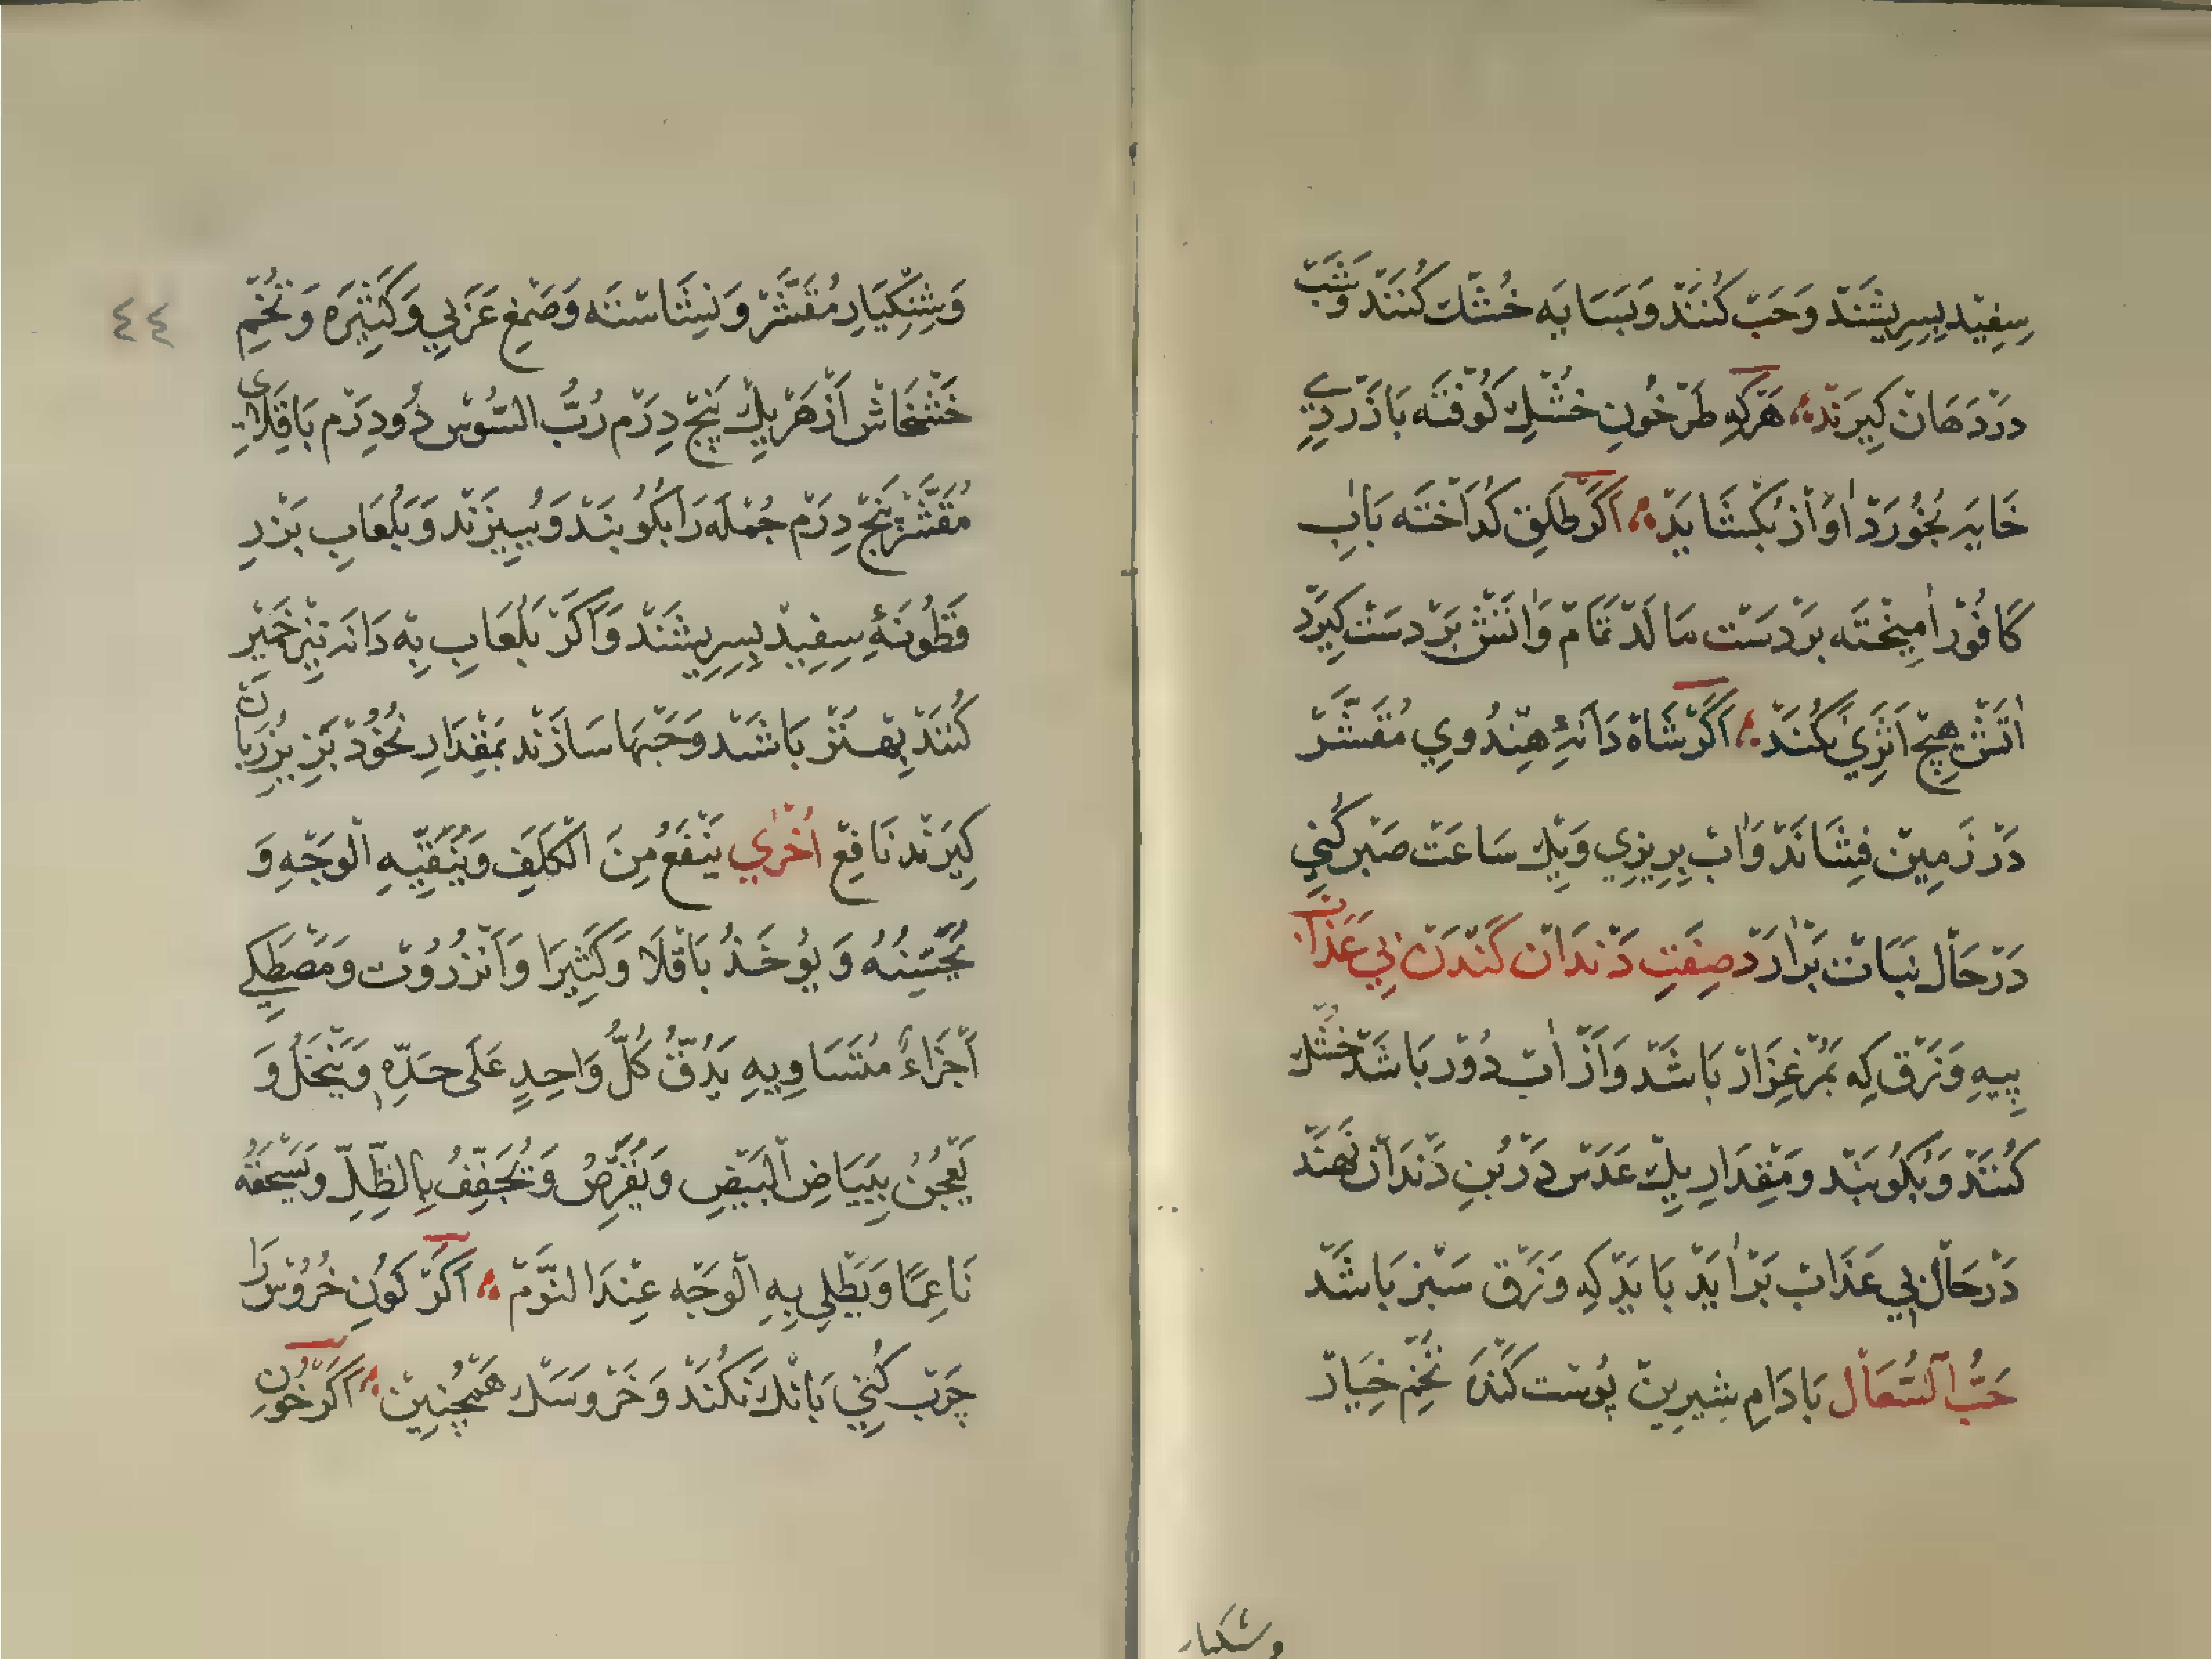 سِفِيْد بِسِرِيشَنَدْ وَحَبّ كُنَنَدْ وَبَسَايَه خُشْك كُنَنَدْ وَشَبْ
دَرْدَهَانْ كِيرَنْد هَرْكِه طَرْخُونِ خُشْكِ كُوفْتَه بَازَرْدِيِ
خَايَه بُخُورَدْ اٰوَازْ بُكْشَايَدْ اَكَرْ طَلَقِ كُدَاخْتَه بَابِ
كَافُوْر اٰمِيخْتَه بَرْدَسْت مَالَدْ تَمَامْ وَاٰتَشْ بَرْدَسْتْ كِيرَدْ
اٰتَشْ هِيچْ اَثَرِيْ نَكُنَدْ اَكَرْ شَاهْ دَانَهِٔ هِنْدُوِيِ مُقَشَّرْ
دَرْزَمِينْ فِشَانَدْ وَاٰبْ بِرِيزِي وَيِكْ سَاعَتْ صَبْر كُنِي
دَرْحَالْ نَبَاتْ بَرْاٰرَدْ صِفَتِ دَنْدَانْ كَنْدَنْ بِي عَذَابْ
پِيهِ وَزَقْ كِه بَمُرْغِزَارْ بَاشَدْ وَاَزْ اٰبْ دُوْر بَاشَدْ خُشْك
كُنَنَدْ وَبُكُوبَنْد وَمَقْدَارِ يِكْ عَدَسْ دَرْبُنِ دَنْدَانْ نَهَنْد
دَرْحَالْ بِي عَذَابْ بَرْاٰيَدْ بَايَدْ كِه وَزَقْ سَبْز بَاشَدْ
حَبُّ السُّعَالْ بَادَامِ شِيرِينْ پُوسْت كَنْدَه تُخْمِ خِيَارْ
وشنكيار
٤٤
وَشِنْكِيَارِ مُقَشَّرْ وَنِشَاسْتَه وَصَمْغِ عَرَبِي وَكَثِيْرَه وَتُخْمِ
خَشْخَاشْ اَزْهَرْيِكْ پَنْج دِرَمْ رُبُّ السُّوْسْ دُودِرَمْ بَاقِلَاىِ
مُقَشَّرْ پَنْج دِرَمْ جُمْلَه رَا بَكُوبَنْد وَبِبِيزَنْد وَبَلُعَابِ بَزْرِ
قَطُونَهِٔ سِفِيْد بِسِرِيشَنَدْ وَاَكَرْ بَلُعَابِ بِه دَانَه نِيْز خَمِيْر
كُنَنَدْ بِهْتَرْ بَاشَدْ وَحَبّهَا سَازَنْد بَمَقْدَارِ نُخُوْد بَزِيْر زُبَانْ
كِيرَنْد نَافِعْ اُخْرٰي يَنْفَعُ مِنَ الْكَلَفِ وَيُنَقِّيهِ الْوَجْهِ وَ
يُحَسِّنُهُ وَيُوخَذُ بَاقْلَا وَكَثِيَرا وَاَنْزَرُوُتْ وَمَصْطَكِي
اَجْزَاءٌ مُتَسَاوِيهِ يَدُقُّ كُلُّ وَاحِدٍ عَلَى حَدِّهِ وَيَنْخَلُ وَ
يَعْجُنُ بِبَيَاضِ الْبَيْضِ وَيُقَرِّصُ وَيُجَفِّفُ بِالظِّلِّ وَيَسْحَقُهُ
نَاعِمًا وَيَطْلِي بِهِ الْوَجْه عِنْدَ النَّوْمْ اَكَرْ كُونِ خُرُوْس رَا
چَرْبْ كُنِي بَانْكْ نَكُنَدْ وَخَرْوسَكْ هَمْچُنِينْ اَكَرْ خُونِ